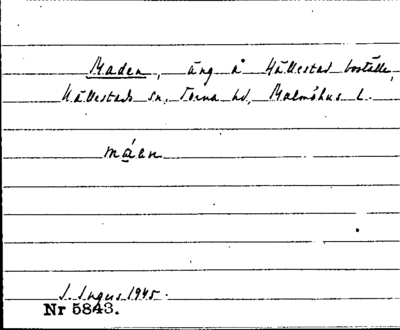 Maden, äng å Hällestad boställe,
Hällestads sn, Torna hd, Malmöhus L.
máan
J. Ingers 1945.
Nr 5843.